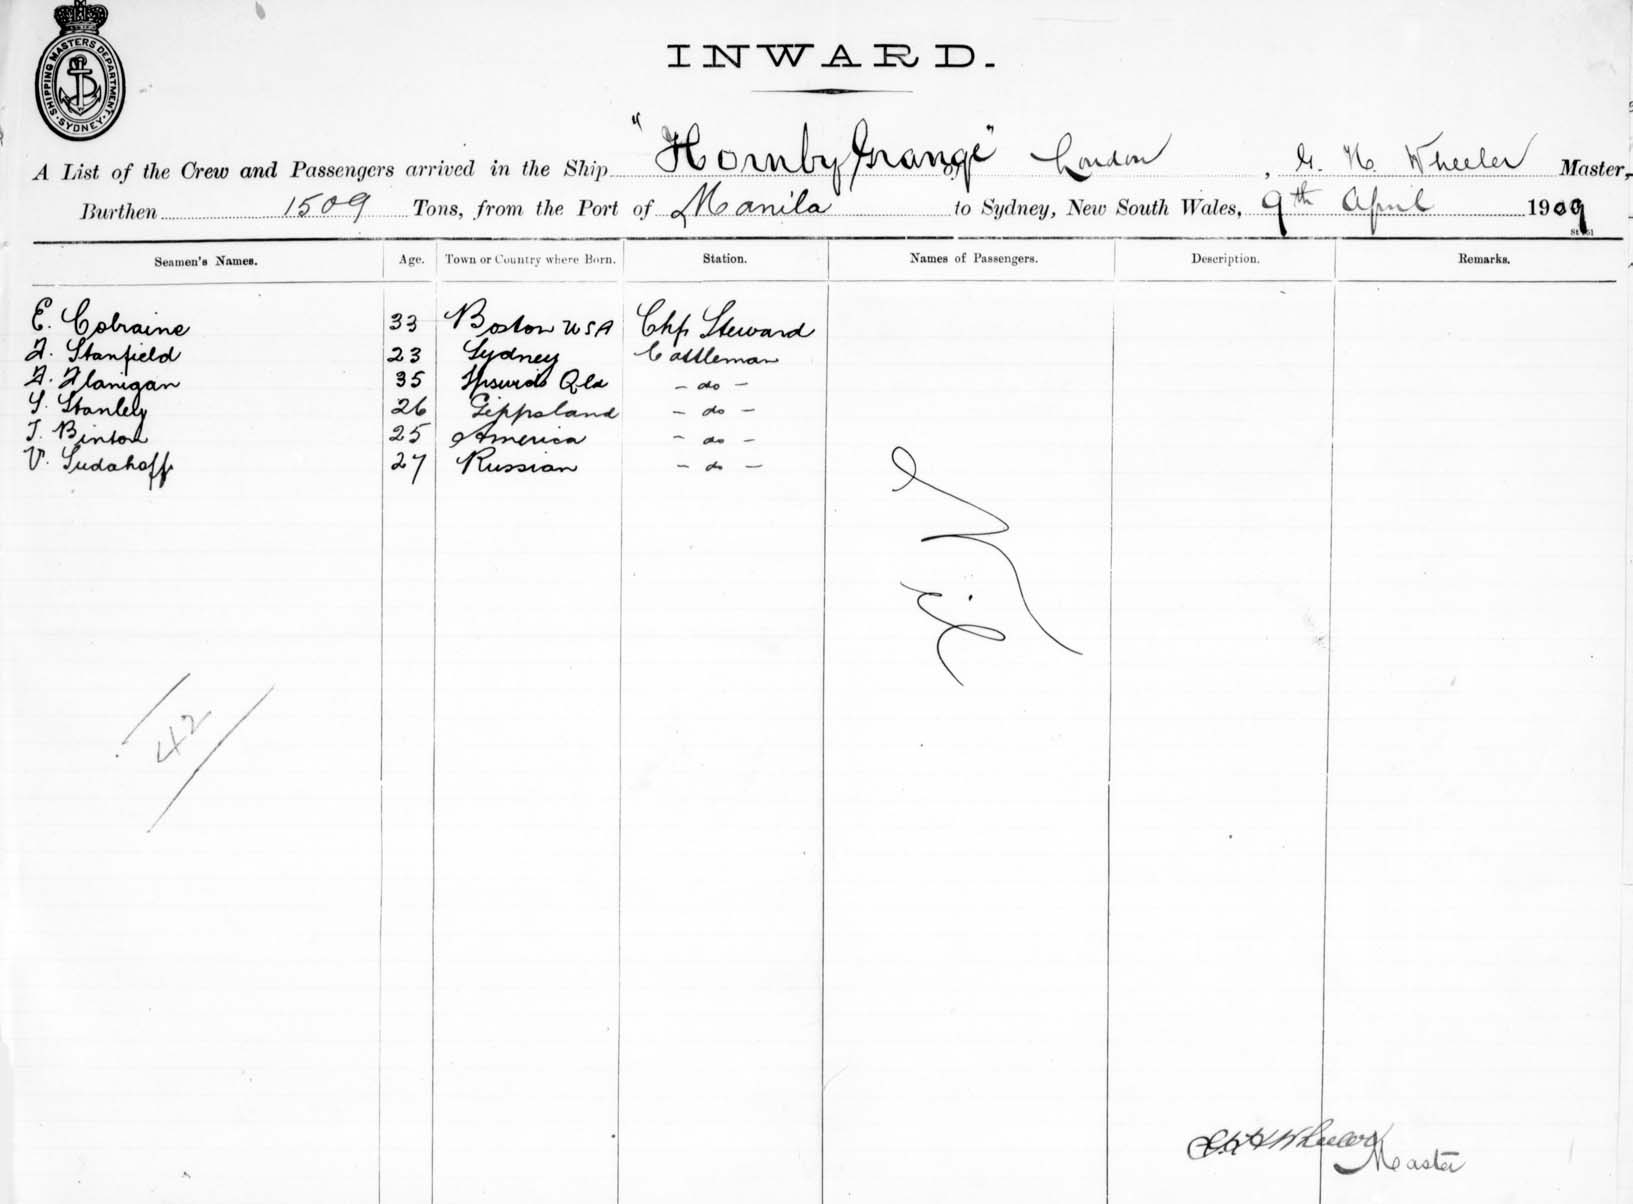 SHIPPING MASTERS DEPARTMENT
SYDNEY
INWARD.
A List of the Crew and Passengers arrived in the Ship "Hornby Grange" of London, G. H. Wheeler Master,
Burthen 1509 Tons, from the Port of Manila to Sydney, New South Wales, 9th April 1909
Seamen's Names. Age. Town or Country where Born. Station. Names of Passengers. Description. Remarks.
E. Cobraine 33 Boston USA Chf Steward
F. Stanfield 23 Sydney Cattleman
F. Flanigan 35 Qld - do -
S. Stanley 26 Gippsland - do -
T. Binton 25 America - do -
V. Sudahoff 27 Russian - do -
Nil
42
G H Wheeler
Master